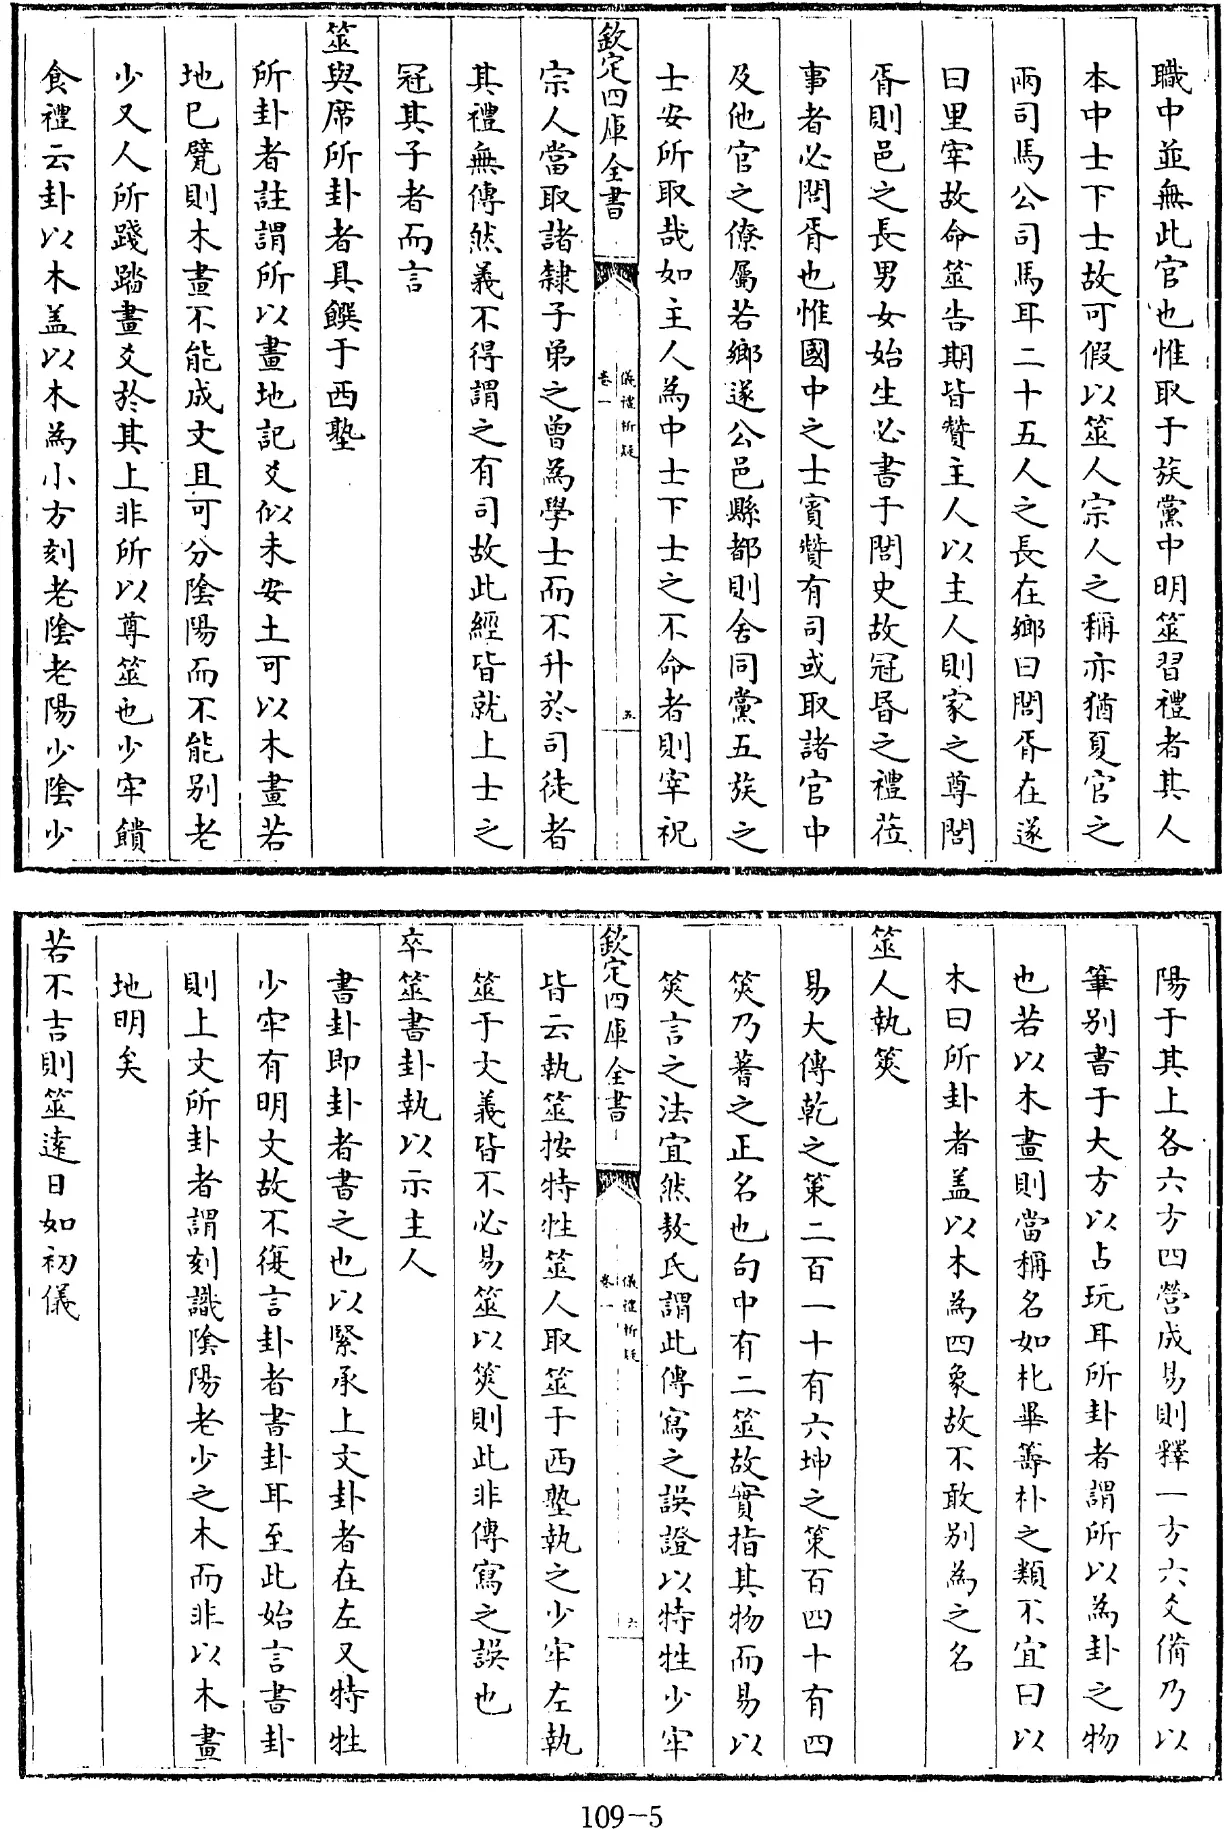 職中並無此官也惟取于族黨中明筮習禮者其人
本中士下士故可假以筮人宗人之稱亦猶夏官之
兩司馬公司馬耳二十五人之長在鄉曰閭胥在遂
曰里宰故命筮告期皆贊主人以主人則家之尊閭
胥則邑之長男女始生必書于閭史故冠昬之禮莅
事者必閭胥也惟國中之士賓贊有司或取諸官中
及他官之僚屬若鄉遂公邑縣都則舍同黨五族之
士安所取哉如主人為中士下士之不命者則宰祝
欽定四庫全書
儀禮析疑
卷一
五
宗人當取諸隸子弟之曾為學士而不升於司徒者
其禮無傳然義不得謂之有司故此經皆就上士之
冠其子者而言
筮與席所卦者具饌于西塾
所卦者註謂所以畫地記爻似未安土可以木畫若
地已甓則木畫不能成文且可分陰陽而不能别老
少又人所踐踏畫爻於其上非所以尊筮也少牢饋
食禮云卦以木盖以木為小方刻老陰老陽少陰少
陽于其上各六方四營成易則釋一方六爻備乃以
筆别書于大方以占玩耳所卦者謂所以為卦之物
也若以木畫則當稱名如朼畢籌朴之類不宜曰以
木曰所卦者盖以木為四象故不敢别為之名
筮人執筴
易大傳乾之策二百一十有六坤之策百四十有四
筴乃蓍之正名也句中有二筮故實指其物而易以
筴言之法宜然敖氏謂此傳寫之誤證以特牲少牢
欽定四庫全書
儀禮析疑
卷一
六
皆云執筮按特牲筮人取筮于西塾執之少牢左執
筮于文義皆不必易筮以筴則此非傳寫之誤也
卒筮書卦執以示主人
書卦即卦者書之也以緊承上文卦者在左又特牲
少牢有明文故不復言卦者書卦耳至此始言書卦
則上文所卦者謂刻識陰陽老少之木而非以木畫
地明矣
若不吉則筮遠日如初儀
109-5